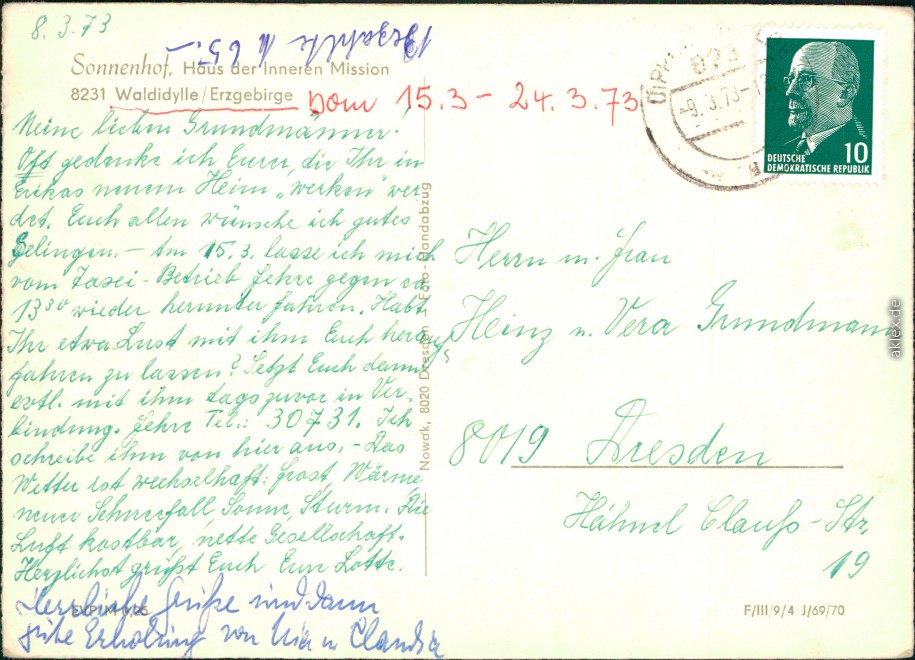 8.3.73
Bezahlte M 65.-
Sonnenhof, Haus der Inneren Mission
8231 Waldidylle/Erzgebirge
vom 15.3 - 24.3.73
Meine lieben Grundmänner!
Oft gedenke ich Eurer, die Ihr in
Erikas neuem Heim „werken" wer
det. Euch allen wünsche ich gutes
Gelingen. - Am 15.3. lasse ich mich
vom Taxi-Betrieb Fehre gegen ca
13³⁰ wieder herunter fahren. Habt
Ihr etwa Lust mit ihm Euch herauf
fahren zu lassen? Setzt Euch dann
evtl. mit ihm tags zuvor in Ver-
bindung. Fehre Tel.: 30731. Ich
schreibe ihm von hier aus. - Das
Wetter ist wechselhaft: Frost, Wärme
neuer Schneefall, Sonne, Sturm. Die
Luft kostbar, nette Gesellschaft.
Herzlichst grüßt Euch Eure Lotte.
Herzliche Grüße und dann
gute Erholung von Uta u. Claudia
Nowak, 8020 Dresden - Foto-Handabzug
-9.3.73-
DEUTSCHE
DEMOKRATISCHE REPUBLIK
10
Herrn u. Frau
Heinz u. Vera Grundmann
8019 Dresden
Hähnel Clauß-Str.
19
F/III/9/4 J/69/70
aklex.de